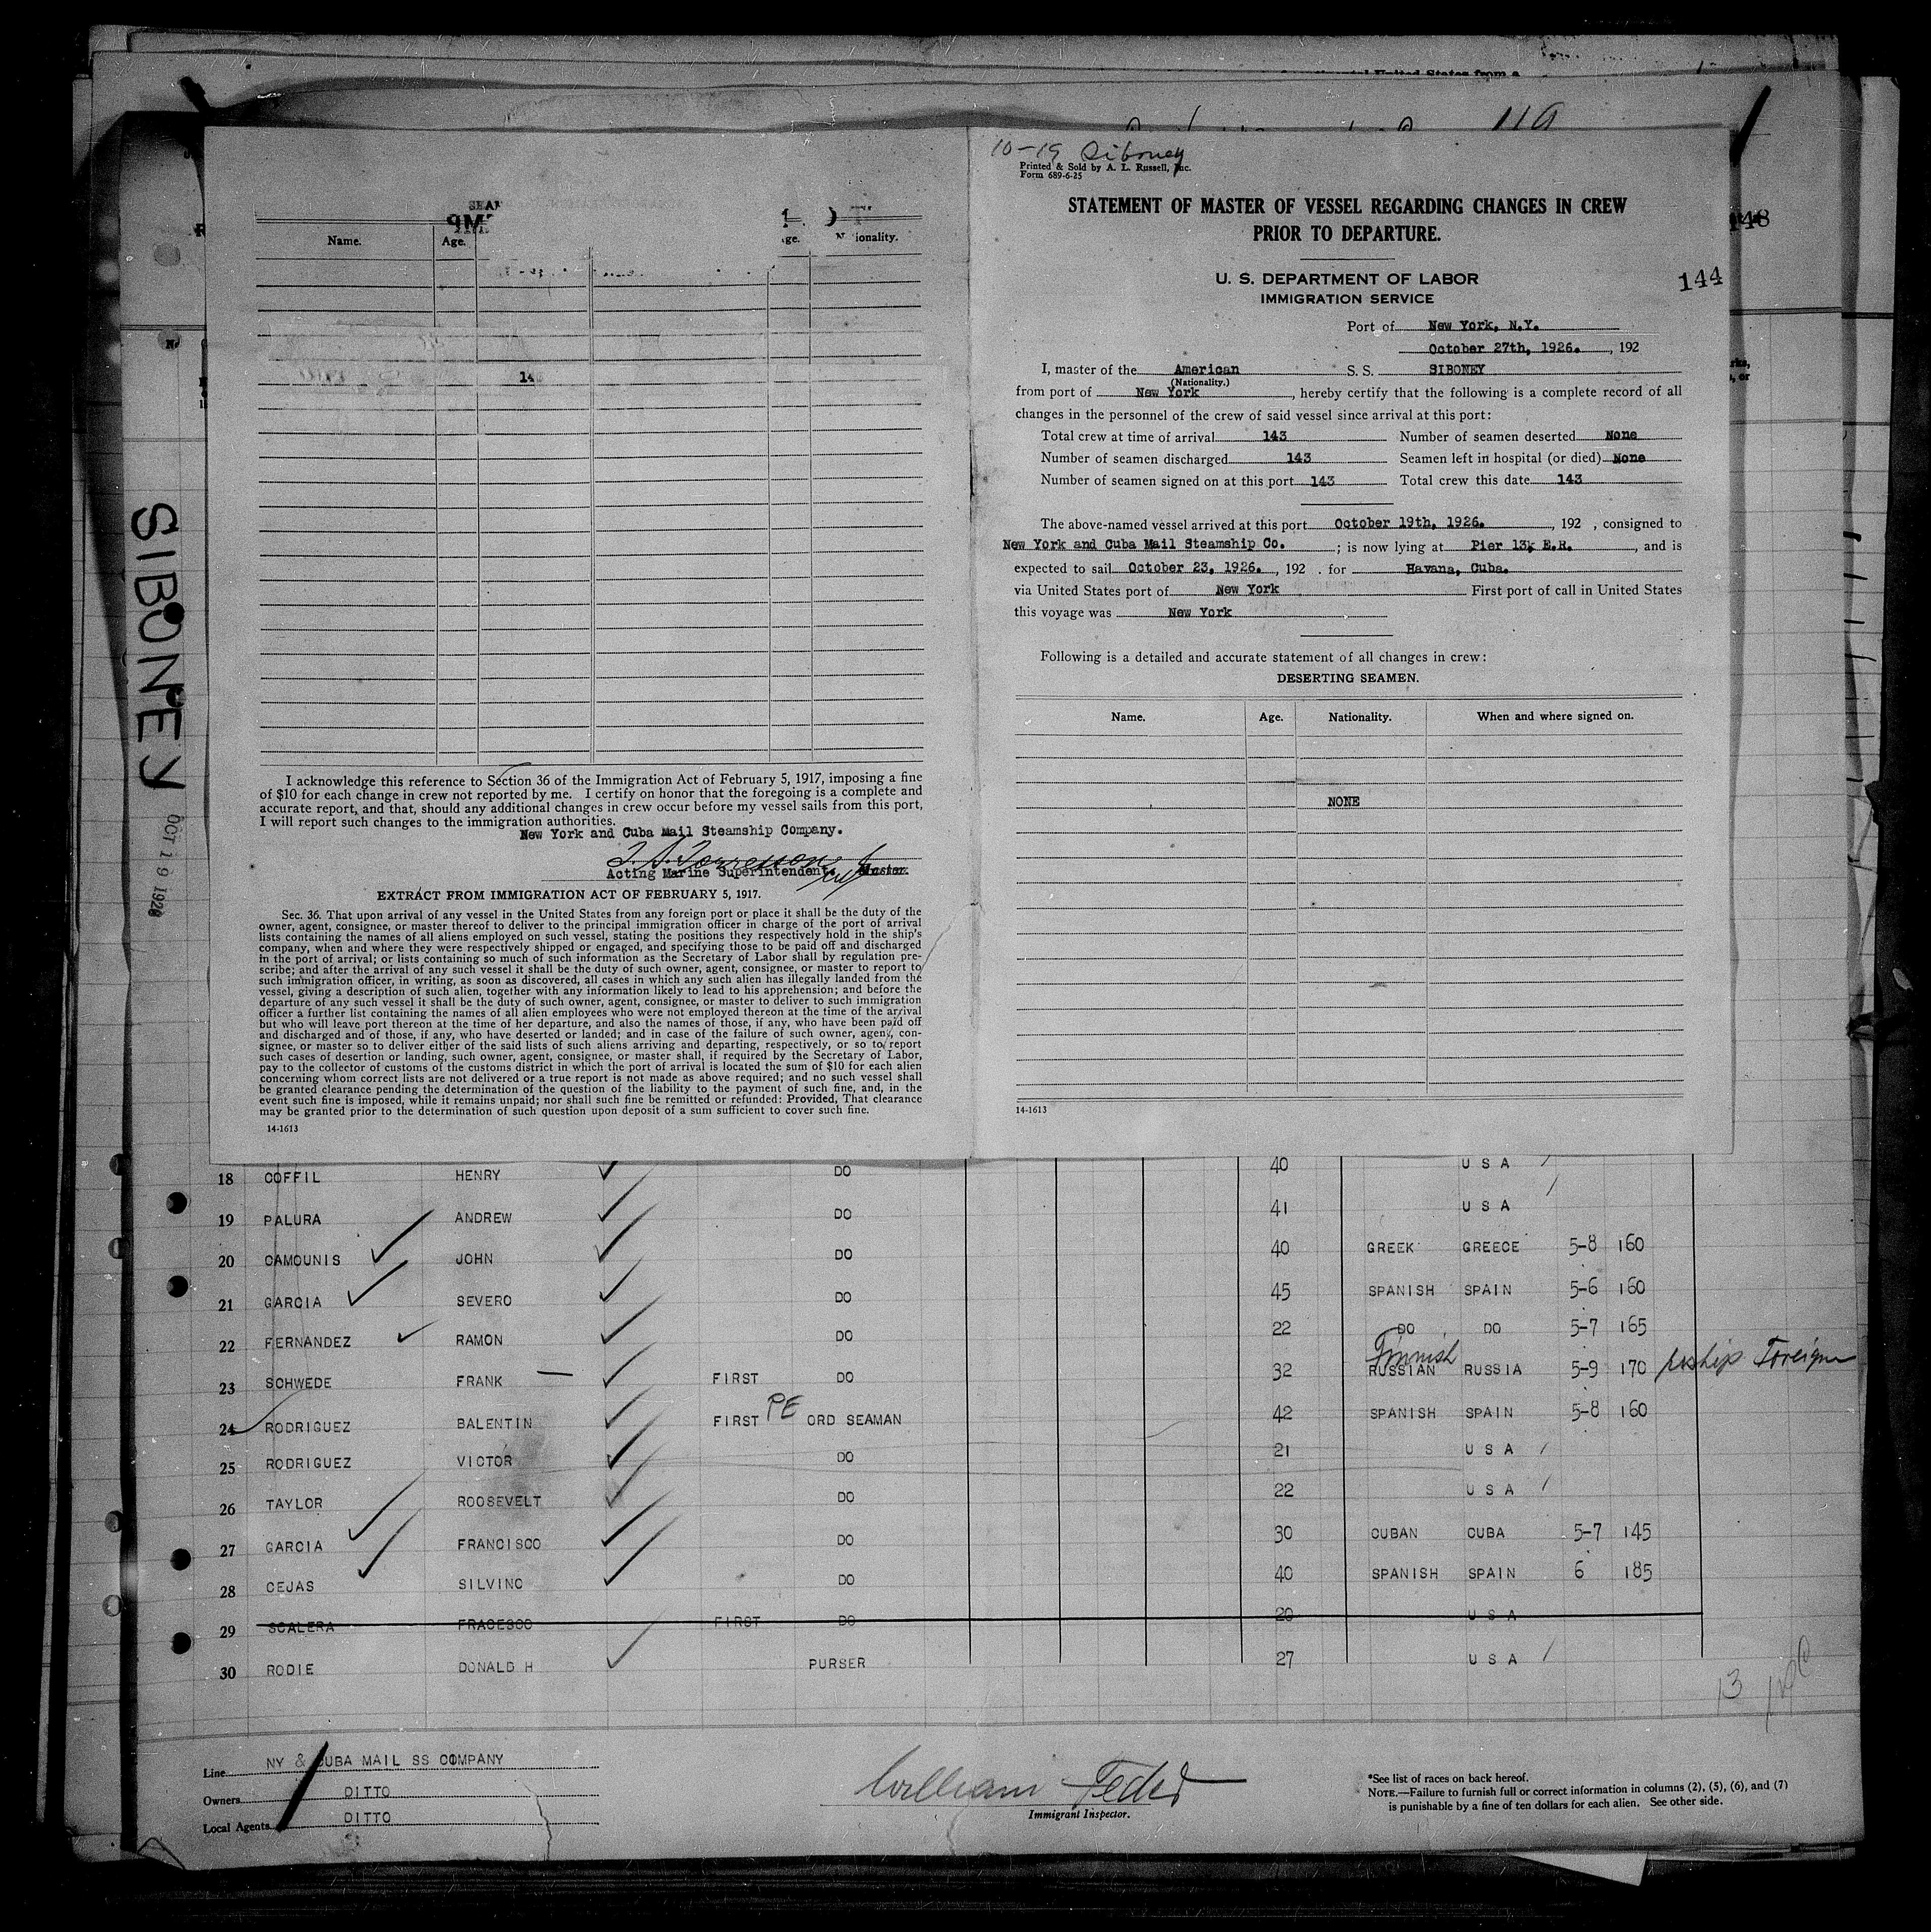 SIBONEY
OCT 19 1926
119
148
Name. Age. Nationality.
I acknowledge this reference to Section 36 of the Immigration Act of February 5, 1917, imposing a fine
of $10 for each change in crew not reported by me. I certify on honor that the foregoing is a complete and
accurate report, and that, should any additional changes in crew occur before my vessel sails from this port,
I will report such changes to the immigration authorities.
New York and Cuba Mail Steamship Company.
Acting Marine Superintendent. Master.
EXTRACT FROM IMMIGRATION ACT OF FEBRUARY 5, 1917.
Sec. 36. That upon arrival of any vessel in the United States from any foreign port or place it shall be the duty of the
owner, agent, consignee, or master thereof to deliver to the principal immigration officer in charge of the port of arrival
lists containing the names of all aliens employed on such vessel, stating the positions they respectively hold in the ship's
company, when and where they were respectively shipped or engaged, and specifying those to be paid off and discharged
in the port of arrival; or lists containing so much of such information as the Secretary of Labor shall by regulation pre-
scribe; and after the arrival of any such vessel it shall be the duty of such owner, agent, consignee, or master to report to
such immigration officer, in writing, as soon as discovered, all cases in which any such alien has illegally landed from the
vessel, giving a description of such alien, together with any information likely to lead to his apprehension; and before the
departure of any such vessel it shall be the duty of such owner, agent, consignee, or master to deliver to such immigration
officer a further list containing the names of all alien employees who were not employed thereon at the time of the arrival
but who will leave port thereon at the time of her departure, and also the names of those, if any, who have been paid off
and discharged and of those, if any, who have deserted or landed; and in case of the failure of such owner, agent, con-
signee, or master so to deliver either of the said lists of such aliens arriving and departing, respectively, or so to report
such cases of desertion or landing, such owner, agent, consignee, or master shall, if required by the Secretary of Labor,
pay to the collector of customs of the customs district in which the port of arrival is located the sum of $10 for each alien
concerning whom correct lists are not delivered or a true report is not made as above required; and no such vessel shall
be granted clearance pending the determination of the question of the liability to the payment of such fine, and, in the
event such fine is imposed, while it remains unpaid; nor shall such fine be remitted or refunded: Provided, That clearance
may be granted prior to the determination of such question upon deposit of a sum sufficient to cover such fine.
14-1613
10-19 Siboney
Printed & Sold by A. L. Russell, Inc.
Form 689-6-25
STATEMENT OF MASTER OF VESSEL REGARDING CHANGES IN CREW
PRIOR TO DEPARTURE.
U. S. DEPARTMENT OF LABOR
IMMIGRATION SERVICE
144
Port of New York, N.Y.
October 27th, 1926. , 192
I, master of the American S. S. SIBONEY
(Nationality.)
from port of New York , hereby certify that the following is a complete record of all
changes in the personnel of the crew of said vessel since arrival at this port:
Total crew at time of arrival 143 Number of seamen deserted None
Number of seamen discharged 143 Seamen left in hospital (or died) None
Number of seamen signed on at this port 143 Total crew this date 143
The above-named vessel arrived at this port October 19th, 1926. , 192 , consigned to
New York and Cuba Mail Steamship Co. ; is now lying at Pier 13, E.R. , and is
expected to sail October 23, 1926. , 192 . for Havana, Cuba.
via United States port of New York First port of call in United States
this voyage was New York
Following is a detailed and accurate statement of all changes in crew:
DESERTING SEAMEN.
Name. Age. Nationality. When and where signed on.
NONE
14-1613
18 COFFIL HENRY DO 40 U S A
19 PALURA ANDREW DO 41 U S A
20 CAMOUNIS JOHN DO 40 GREEK GREECE 5-8 160
21 GARCIA SEVERO DO 45 SPANISH SPAIN 5-6 160
22 FERNANDEZ RAMON DO 22 DO DO 5-7 165
Finnish
23 SCHWEDE FRANK FIRST DO 32 RUSSIAN RUSSIA 5-9 170 Foreign
24 RODRIGUEZ BALENTIN FIRST PE ORD SEAMAN 42 SPANISH SPAIN 5-8 160
25 RODRIGUEZ VICTOR DO 21 U S A
26 TAYLOR ROOSEVELT DO 22 U S A
27 GARCIA FRANCISCO DO 30 CUBAN CUBA 5-7 145
28 CEJAS SILVINO DO 40 SPANISH SPAIN 6 185
29 SCALERA FRACESCO FIRST DO 20 U S A
30 RODIE DONALD H PURSER 27 U S A
13
Line NY & CUBA MAIL SS COMPANY
Owners DITTO
Local Agents DITTO
William
Immigrant Inspector.
*See list of races on back hereof.
NOTE.—Failure to furnish full or correct information in columns (2), (5), (6), and (7)
is punishable by a fine of ten dollars for each alien. See other side.